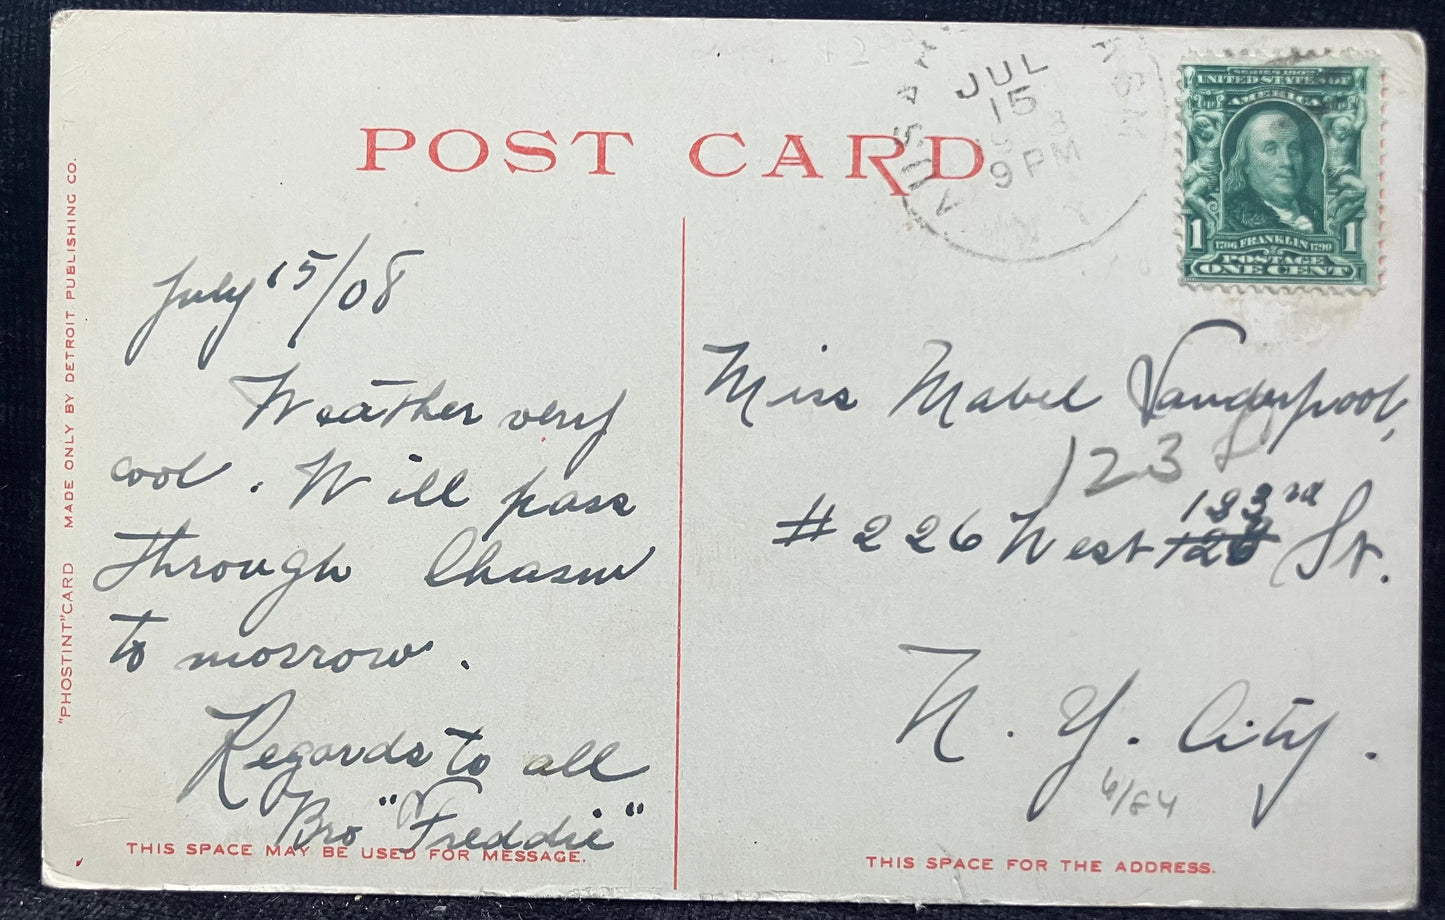 POST CARD
"PHOSTINT" CARD MADE ONLY BY DETROIT PUBLISHING CO.
July 15/08
Weather very
cool. Will pass
through Chasm
to morrow.
Regards to all
Bro "Freddie"
THIS SPACE MAY BE USED FOR MESSAGE.
AUSABLE CHASM
JUL
15
9 PM
N.Y.
SERIES 1902
UNITED STATES OF
AMERICA
1706 FRANKLIN 1790
1 1
POSTAGE
ONE CENT
Miss Mabel Vanderpool,
123
133rd
#226 West 126 St.
N. Y. City.
6/84
THIS SPACE FOR THE ADDRESS.